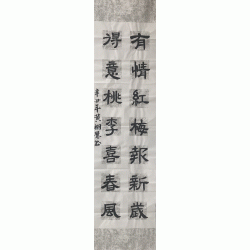 有情紅梅報新歲
得意桃李喜春風
辛丑年